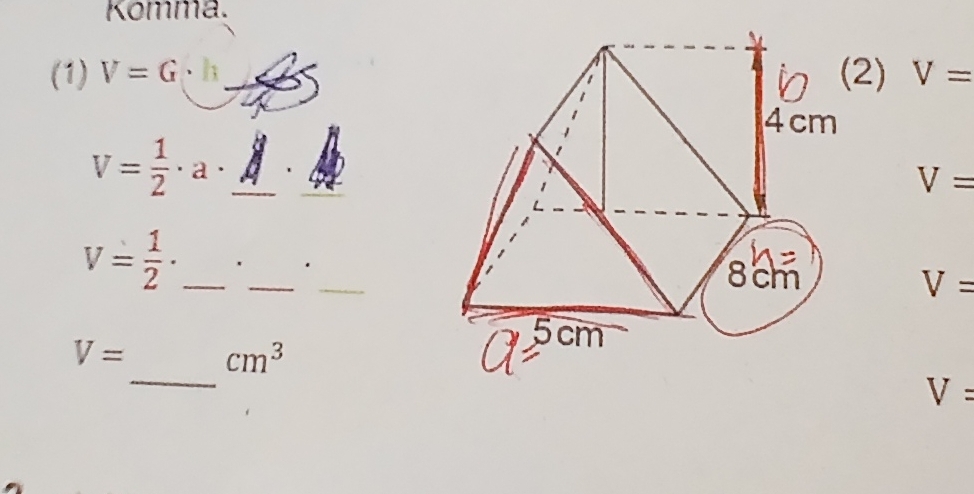 Komma.
(1) V = G · h
V = 1/2 · a · ___ · ___
V = 1/2 · ___ · ___ · ___
V = ___ cm³
b
4 cm
h =
8 cm
a =
5 cm
(2) V =
V =
V =
V =